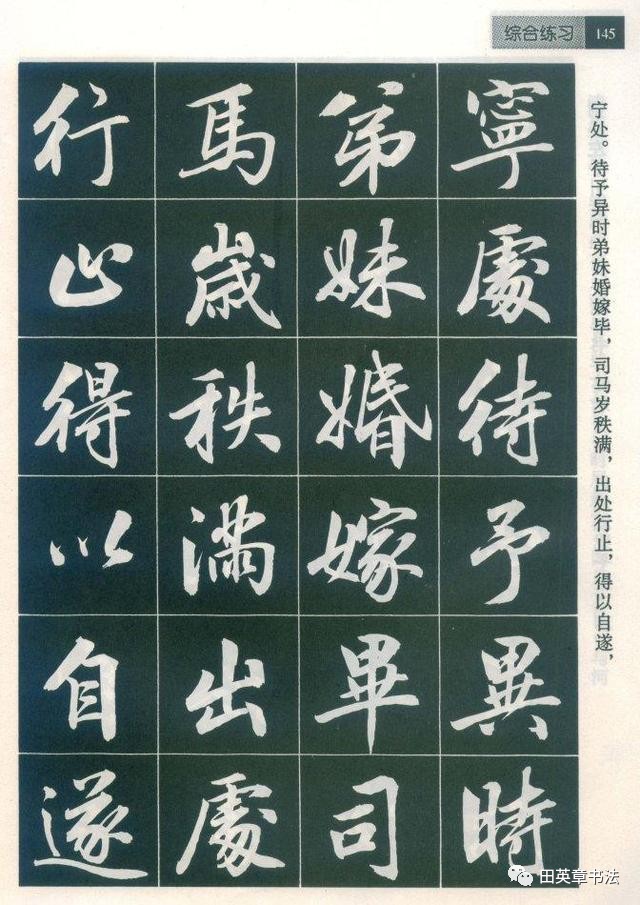 综合练习 145
宁处。待予异时弟妹婚嫁毕，司马岁秩满，出处行止，得以自遂，
寧處待予異時
弟妹婚嫁畢司
馬歲秩滿出處
行止得以自遂
田英章书法